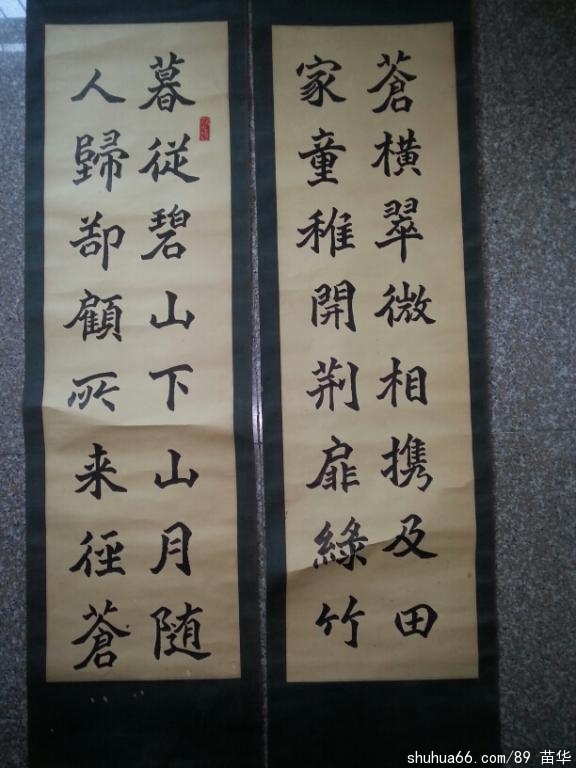 暮從碧山下山月随
人歸卻顧所来徑蒼
蒼橫翠微相携及田
家童稚開荆扉綠竹
shuhua66.com/89 苗华